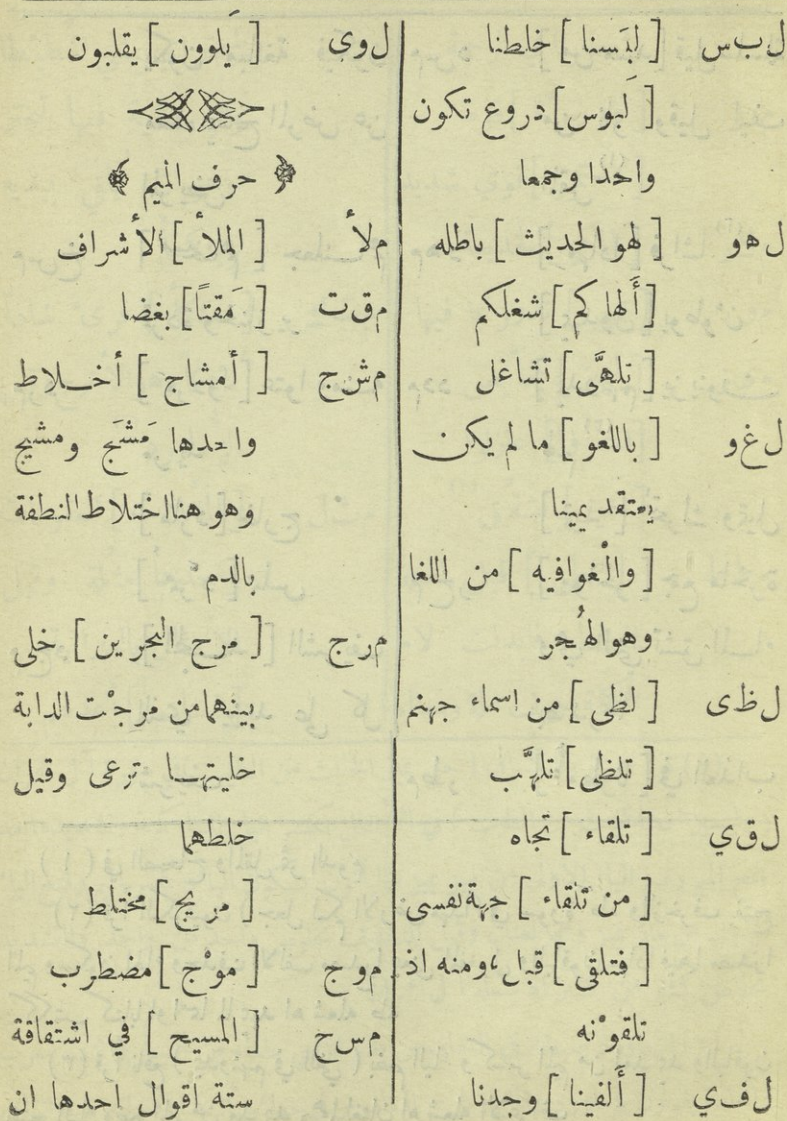 ل ب س [ لبَسنا ] خلطنا
[ لَبوس ] دروع تكون
واحدا وجمعا
ل ه و [ لهو الحديث ] باطله
[ أَلها كم ] شغلكم
[ تلهَّى ] تشاغل
ل غ و [ باللغو ] ما لم يكن
يعتقد يمينا
[ والْغوافيه ] من اللغا
وهو الهُجر
ل ظ ى [ لظى ] من اسماء جهنم
[ تلظى ] تلهَّب
ل ق ي [ تلقاء ] تجاه
[ من تلقاء ] جهة نفسى
[ فتلقى ] قبل، ومنه اذ
تلقوْنه
ل ف ي [ أَلفينا ] وجدنا
ل و ى [ يَلوون ] يقلبون
﴿ حرف الميم ﴾
م ل أ [ الملأ ] الأشراف
م ق ت [ مَقتًا ] بغضا
م ش ج [ أمشاج ] أخـلاط
واحدها مَشَج ومشيج
وهو هنا اختلاط النطفة
بالدم
م ر ج [ مرج البحرين ] خلى
بينهما من مرجْت الدابة
خليتهـا ترعى وقيل
خلطهما
[ مريج ] مختلط
م و ج [ موْج ] مضطرب
م س ح [ المسيح ] في اشتقاقة
ستة اقوال احدها ان